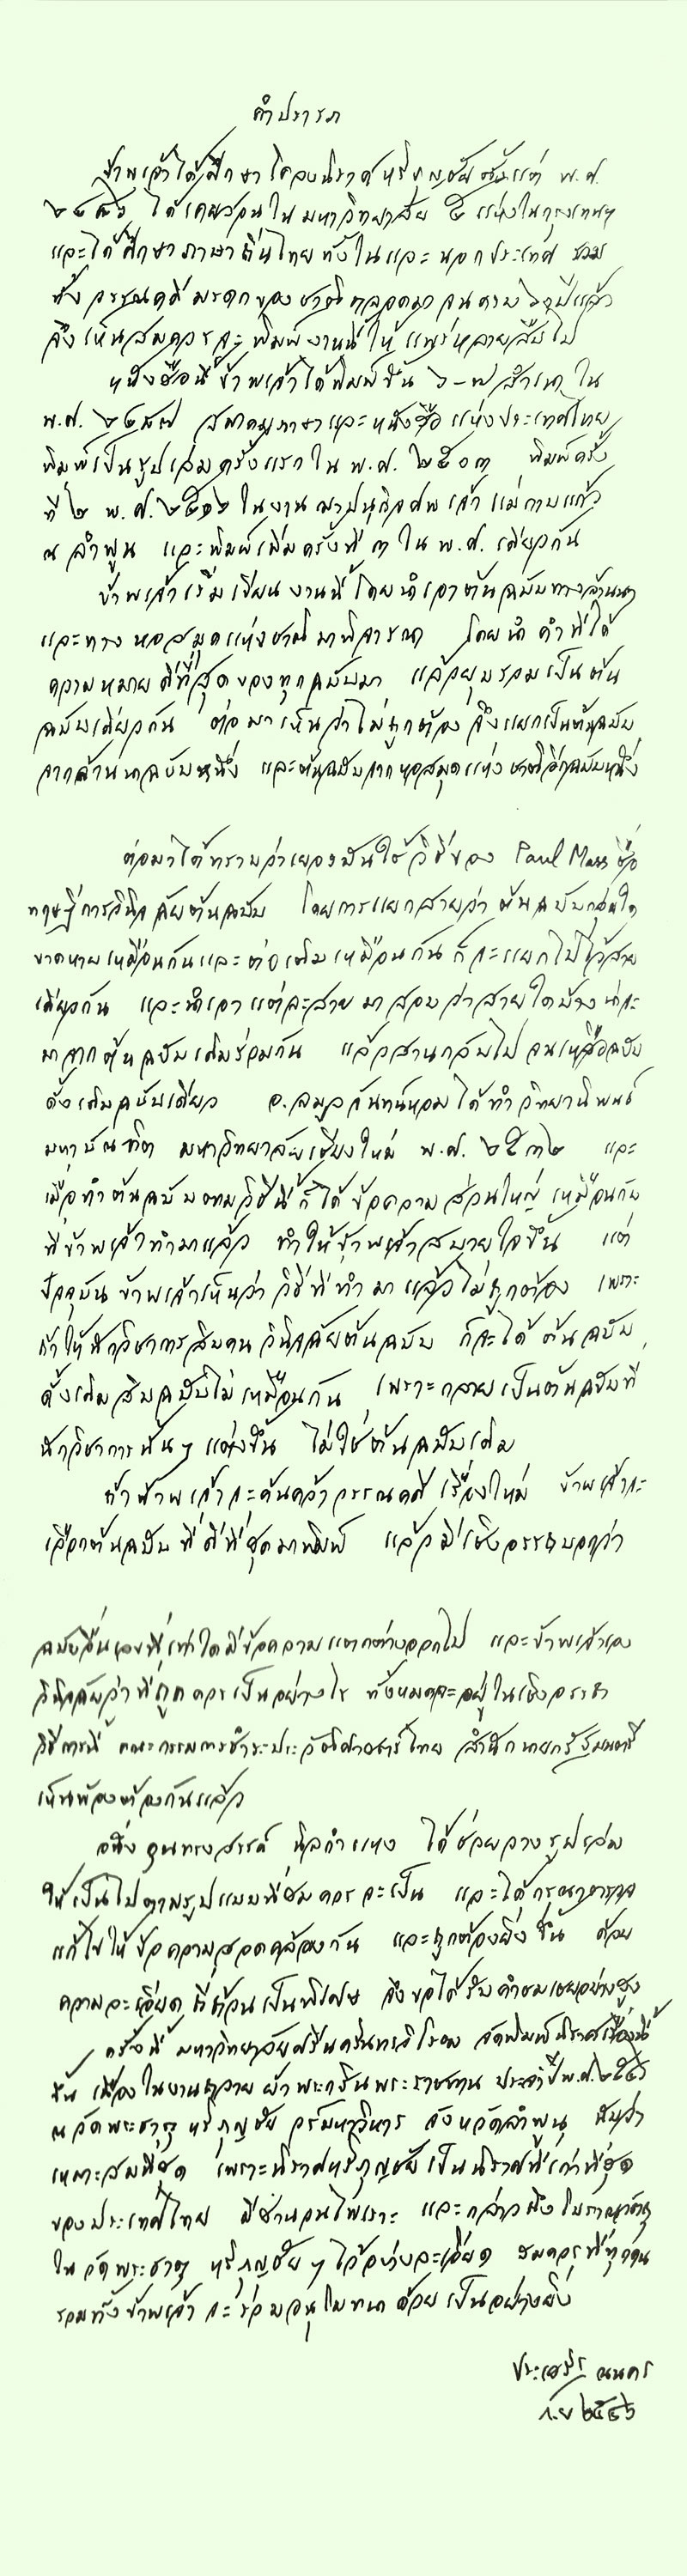 คำปรารภ
ข้าพเจ้าได้ศึกษาโคลงนิราศหริภุญชัยตั้งแต่ พ.ศ.
๒๔๘๖ ได้เคยสอนในมหาวิทยาลัย ๕ แห่งในกรุงเทพฯ
และได้ศึกษาภาษาถิ่นไทยทั้งในและนอกประเทศ รวม
ทั้งวรรณคดีมรดกของชาติตลอดมา จนตาม ๖๐ ปีแล้ว
จึงเห็นสมควรจะพิมพ์งานนี้ให้แพร่หลายสืบไป
หนังสือนี้ข้าพเจ้าได้พิมพ์ขึ้น ๖-๗ สำเนา ใน
พ.ศ. ๒๔๘๗ สมาคมภาษาและหนังสือแห่งประเทศไทย
พิมพ์เป็นรูปเล่มครั้งแรกใน พ.ศ. ๒๕๐๓ พิมพ์ครั้ง
ที่ ๒ พ.ศ. ๒๕๑๖ ในงานฌาปนกิจศพเจ้าแม่ทาบแก้ว
ณ ลำพูน และพิมพ์เพิ่มครั้งที่ ๓ ใน พ.ศ. เดียวกัน
ข้าพเจ้าเริ่มเขียนงานนี้โดยนำเอาต้นฉบับทางล้านนา
และทางหอสมุดแห่งชาติมาพิจารณา โดยนำคำที่ได้
ความหมายดีที่สุดของทุกฉบับมา แล้วยุบรวมเป็นต้น
ฉบับเดียวกัน ต่อมาเห็นว่าไม่ถูกต้อง จึงแยกเป็นต้นฉบับ
จากล้านนาฉบับหนึ่ง และต้นฉบับจากหอสมุดแห่งชาติอีกฉบับหนึ่ง
ต่อมาได้ทราบว่าเยอรมันใช้วิธีของ Paul Mass ชื่อ
ทฤษฎีการวินิจฉัยต้นฉบับ โดยการแยกสายว่า ต้นฉบับกลุ่มใด
ขาดหายเหมือนกันและต่อเติมเหมือนกัน ก็จะแยกไปไว้สาย
เดียวกัน และนำเอาแต่ละสายมาสอบว่าสายใดบ้างน่าจะ
มาจากต้นฉบับเดิมร่วมกัน แล้วสานกลับไปจนเหลือฉบับ
ดั้งเดิมฉบับเดียว อ.ลมูล จันทน์หอม ได้ทำวิทยานิพนธ์
มหาบัณฑิต มหาวิทยาลัยเชียงใหม่ พ.ศ. ๒๕๓๒ และ
เมื่อทำต้นฉบับตามวิธีนี้ก็ได้ข้อความส่วนใหญ่เหมือนกับ
ที่ข้าพเจ้าทำมาแล้ว ทำให้ข้าพเจ้าสบายใจขึ้น แต่
ปัจจุบันข้าพเจ้าเห็นว่าวิธีที่ทำมาแล้วไม่ถูกต้อง เพราะ
ถ้าให้นักวิชาการสิบคนวินิจฉัยต้นฉบับ ก็จะได้ต้นฉบับ
ดั้งเดิมสิบฉบับไม่เหมือนกัน เพราะกลายเป็นต้นฉบับที่
นักวิชาการนั้นๆ แต่งขึ้น ไม่ใช่ต้นฉบับเดิม
ถ้าข้าพเจ้าจะค้นคว้าวรรณคดีเรื่องใหม่ ข้าพเจ้าจะ
เลือกต้นฉบับที่ดีที่สุดมาพิมพ์ แล้วมีเชิงอรรถบอกว่า
ฉบับอื่นเลขที่เท่าใดมีข้อความแตกต่างออกไป และข้าพเจ้าเอง
วินิจฉัยว่าที่ถูกควรเป็นอย่างไร ทั้งหมดจะอยู่ในเชิงอรรถ
วิธีการนี้ คณะกรรมการชำระประวัติศาสตร์ไทย สำนักนายกรัฐมนตรี
เห็นพ้องต้องกันแล้ว
อนึ่ง คุณทรงสรรค์ นิลกำแหง ได้ช่วยวางรูปเล่ม
ให้เป็นไปตามรูปแบบที่สมควรจะเป็น และได้กรุณาตรวจ
แก้ไขให้ข้อความสอดคล้องกัน และถูกต้องยิ่งขึ้น ด้วย
ความละเอียดถี่ถ้วนเป็นพิเศษ จึงขอได้รับคำชมเชยอย่างสูง
ครั้งนี้ มหาวิทยาลัยศรีนครินทรวิโรฒ จัดพิมพ์นิราศเรื่องนี้
ขึ้น เนื่องในงานถวายผ้าพระกฐินพระราชทาน ประจำปี พ.ศ. ๒๕๔๖
ณ วัดพระธาตุหริภุญชัย วรมหาวิหาร จังหวัดลำพูน นับว่า
เหมาะสมที่สุด เพราะนิราศหริภุญชัยเป็นนิราศที่เก่าที่สุด
ของประเทศไทย มีสำนวนไพเราะ และกล่าวถึงโบราณวัตถุ
ในวัดพระธาตุหริภุญชัยๆ ไว้อย่างละเอียด สมควรที่ทุกคน
รวมทั้งข้าพเจ้า จะร่วมอนุโมทนาด้วยเป็นอย่างยิ่ง
ประเสริฐ ณ นคร
ก.ย ๒๕๔๖